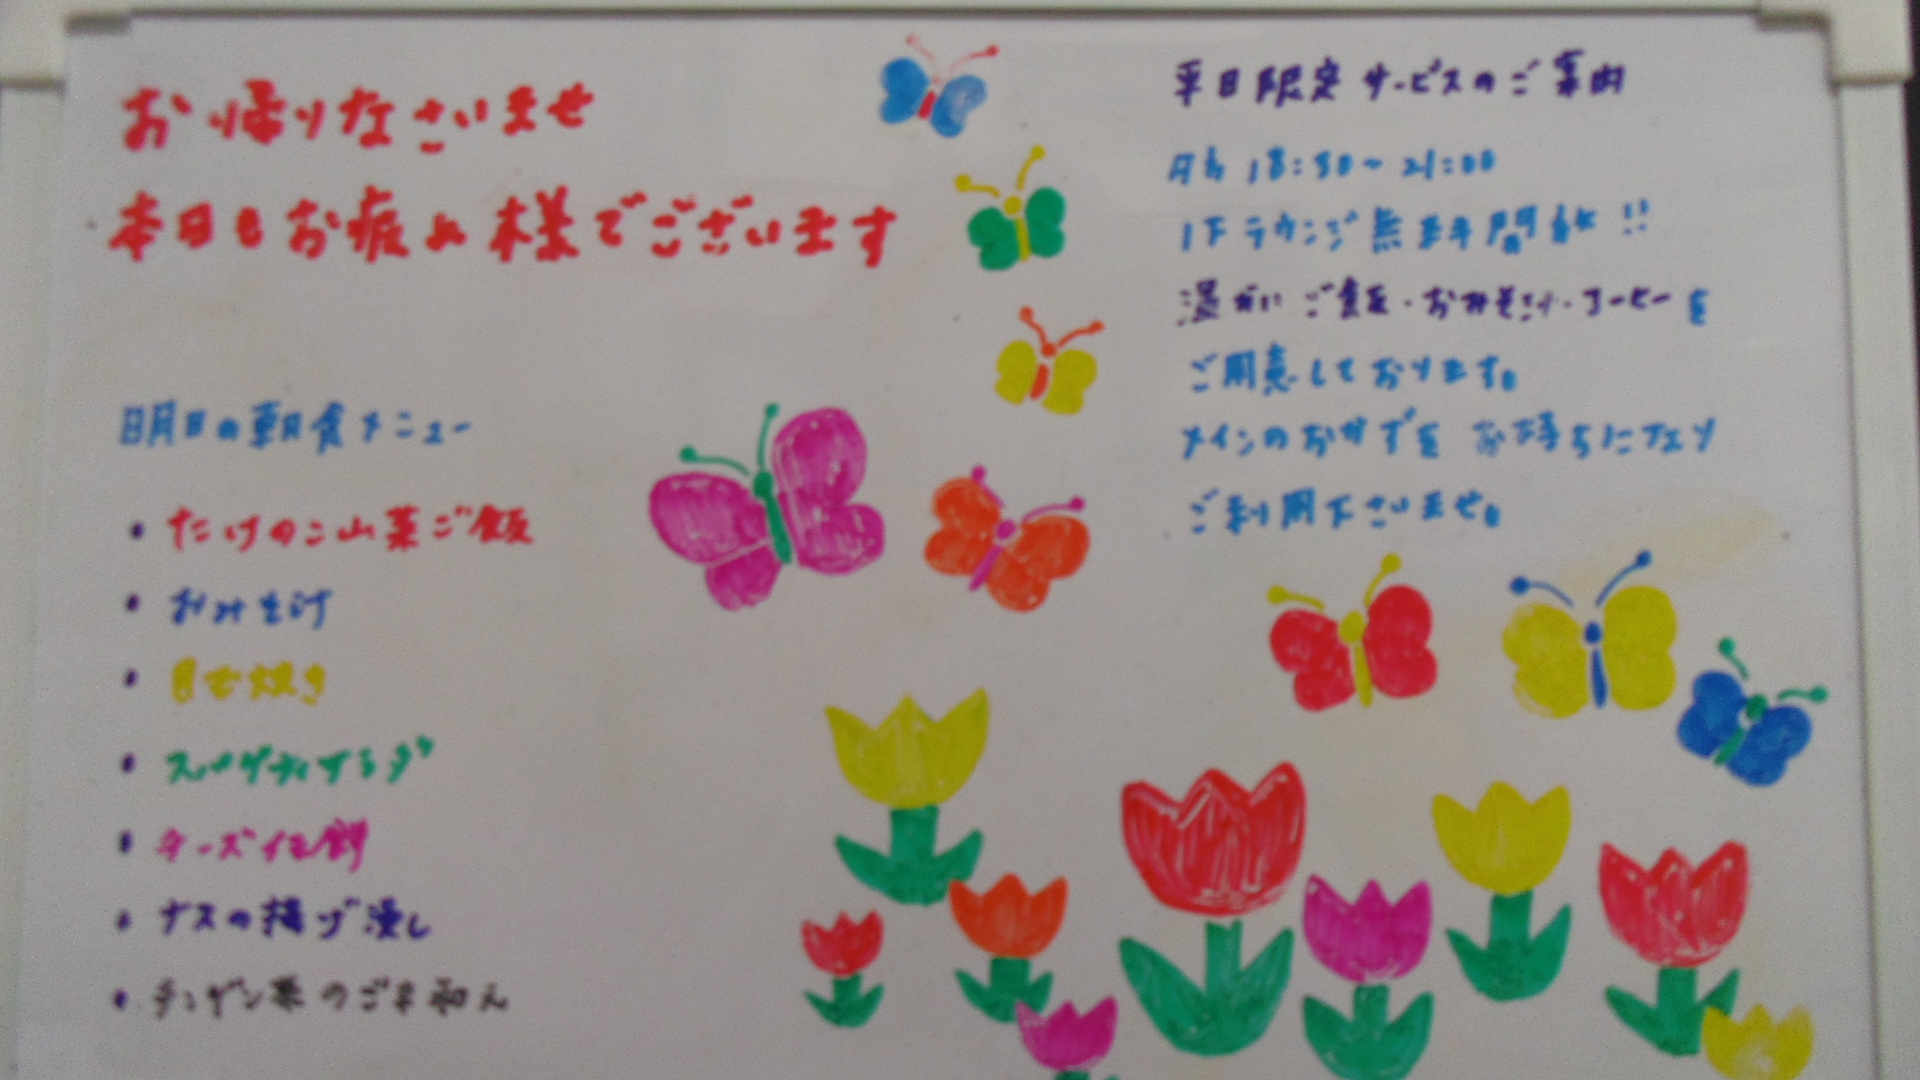 お帰りなさいませ
本日もお疲れ様でございます
明日の朝食メニュー
・たけのこ山菜ご飯
・おみそ汁
・目玉焼き
・スパゲティサラダ
・チーズイモ餅
・ナスの揚げ浸し
・チンゲン菜のごま和え
平日限定サービスのご案内
夕方 18:30～21:00
1Fラウンジ無料開放!!
温かいご飯・おみそ汁・コーヒーを
ご用意しております。
メインのおかずをお持ちになり
ご利用下さいませ。